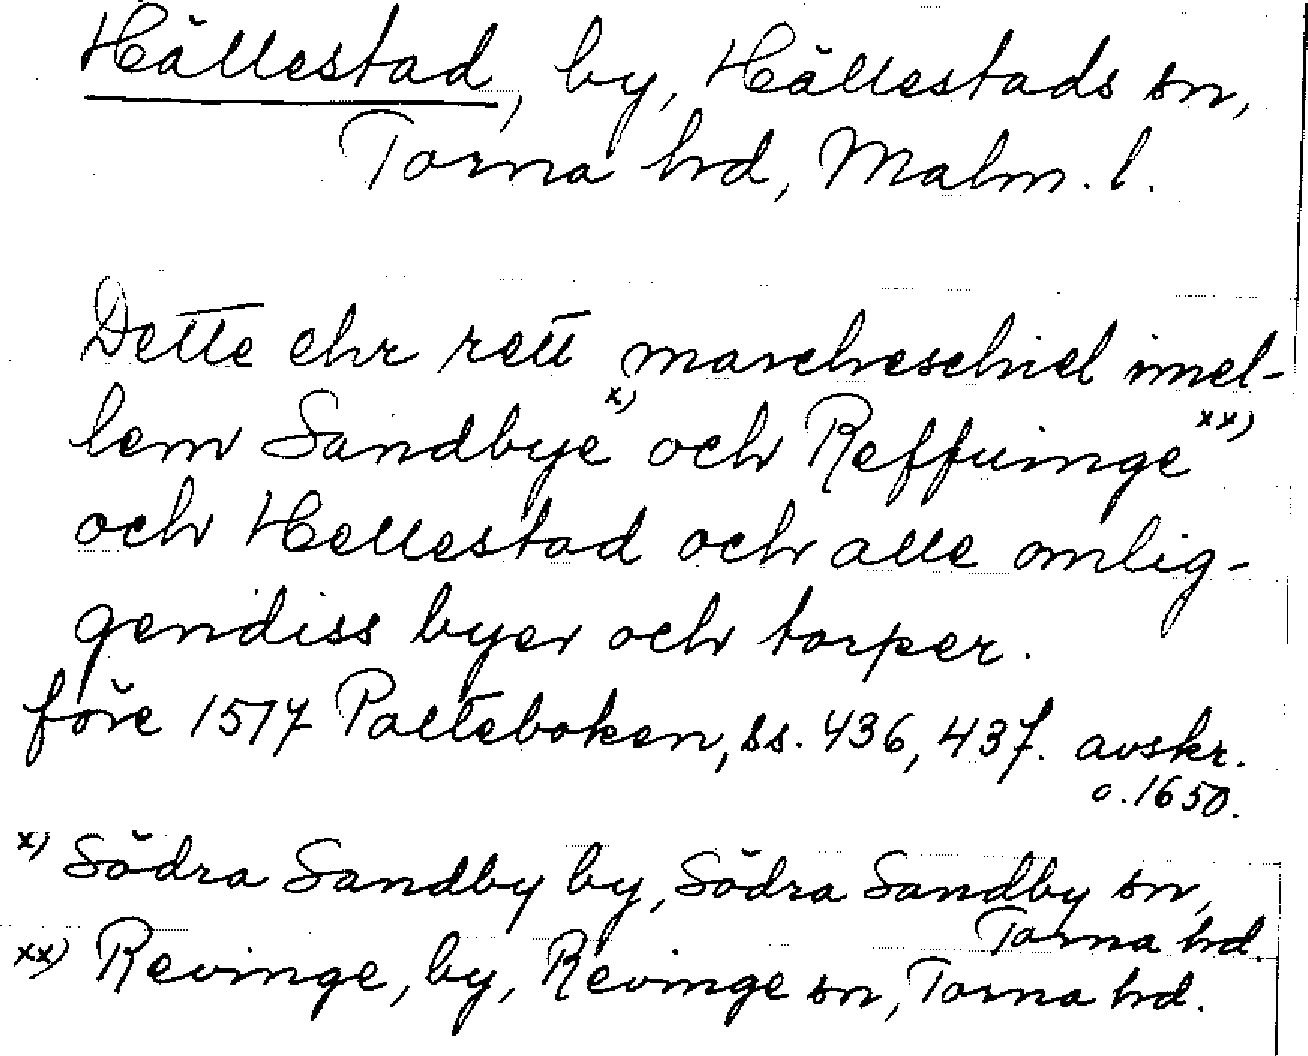 Hällestad, by, Hällestads sn,
Torna hd, Malm. l.
Dette ehr rett marcheschiel imel-
lem Sandbye x) och Reffuinge xx)
och Hellestad och alle omlig-
gendiss byer och torper.
före 1517 Palteboken, ss. 436, 437. avskr.
o. 1650.
x) Södra Sandby by, Södra Sandby sn,
Torna hd.
xx) Revinge, by, Revinge sn, Torna hd.